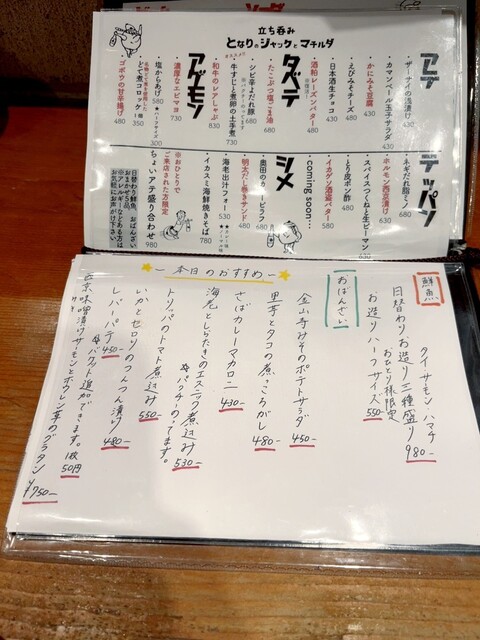 立ち呑み
となりのジャックとマチルダ
アテ
・ザーサイの浅漬け 430
・カマンベール玉子サラダ 430
・かにみそ豆腐 430
・えびみそチーズ 480
・日本酒生チョコ 430
・酒粕レーズンバター 480
タベテ
・たこぶつ塩ごま油 680
・シビ辛よだれ豚 680
・牛すじと煮卵の土手煮 730
・和牛のレアしゃぶ 830
アゲモン
・濃厚なエビマヨ 730
・塩からあげ 580
・どて煮コロッケ 350
・ゴボウの甘辛揚げ 480
テッパン
・ネギだれ豚ミノ 680
・ホルモン西京漬け 630
・スパイスつくねと生ピーマン
・とり皮ポン酢 480
・イカゲソ酒盗バター 580
・coming soon…
シメ
・奥田のカレーピラフ
・明太だし巻きサンド 480
・海老出汁フォー 530
・イカスミ海鮮焼きそば 780
※おひとりで
ご来店された方限定
ちょいアテ盛り合わせ 980
日替わり鮮魚、おばんざい
おまかせ5品
※アレルギーなどある方は
お気軽にお声がけ下さい
本日のおすすめ
鮮魚
タイ サーモン ハマチ
日替わりお造り三種盛り 980-
おひとり様限定
お造りハーフサイズ 550
おばんざい
金山寺みそのポテトサラダ 450-
里芋とタコの煮ころがし 480-
さばカレーマカロニ 430-
海老としらたきのエスニック煮込み 530-
※パクチーのってます。
トリッパのトマト煮込み 550
いかとセロリのつんつん漬け 480-
レバーパテ 450-
※バケット追加できます。1枚50円
西京味噌漬けサーモンとホウレン草のグラタン ¥750-